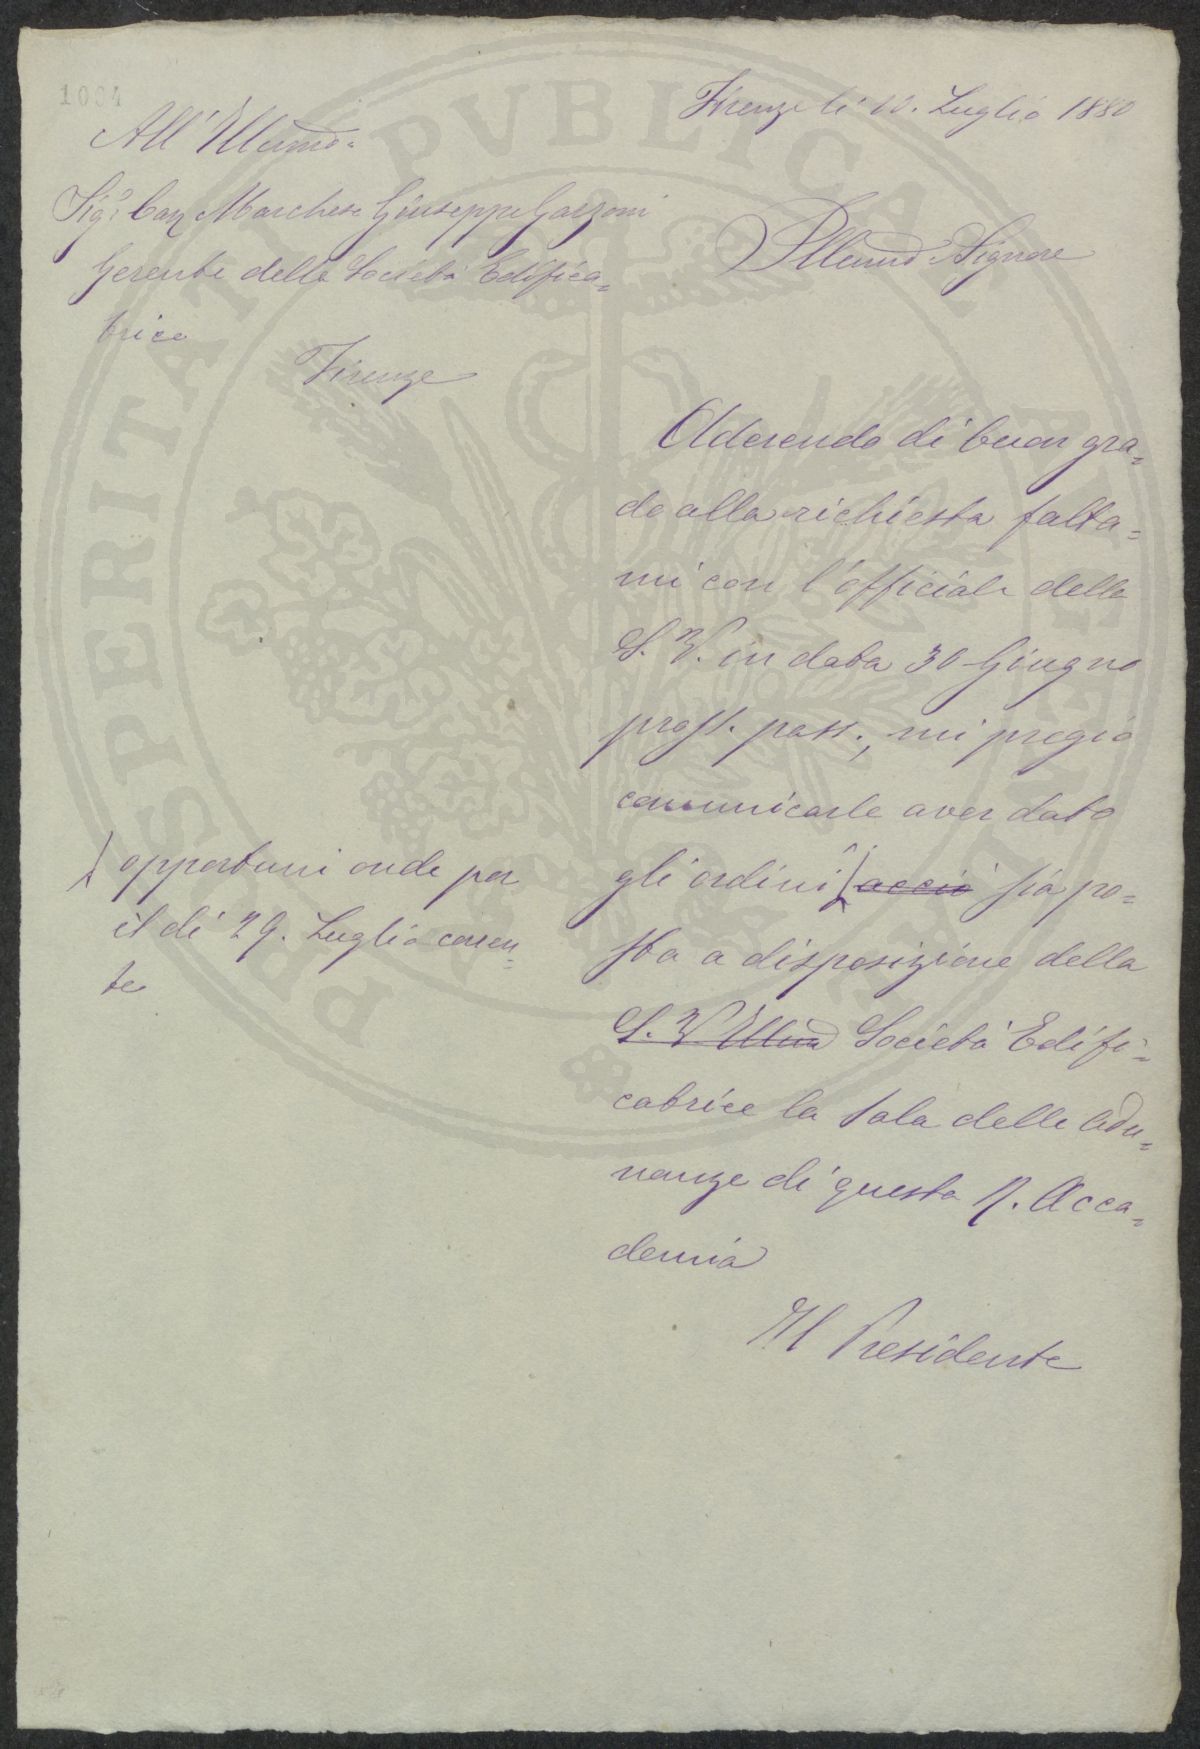 1094
Firenze li 10. Luglio 1880
All' Illumo.
Sigr. Cav Marchese Giuseppe Garzoni
Gerente della Società Edifica=
trice
Firenze
Illumo Signore
Aderendo di buon gra=
do alla richiesta fatta=
mi con l'officiale della
S. V. in data 30 Giugno
pross. pass., mi pregio
comunicarle aver dato
gli ordini acciò sia po=
sta a disposizione della
S. V Illma Società Edifi=
catrice la sala delle Adu=
nanze di questa R. Acca=
demia
Il Presidente
opportuni onde per
il dì 29. Luglio corren=
te
PROSPERITATI PVBLICAE